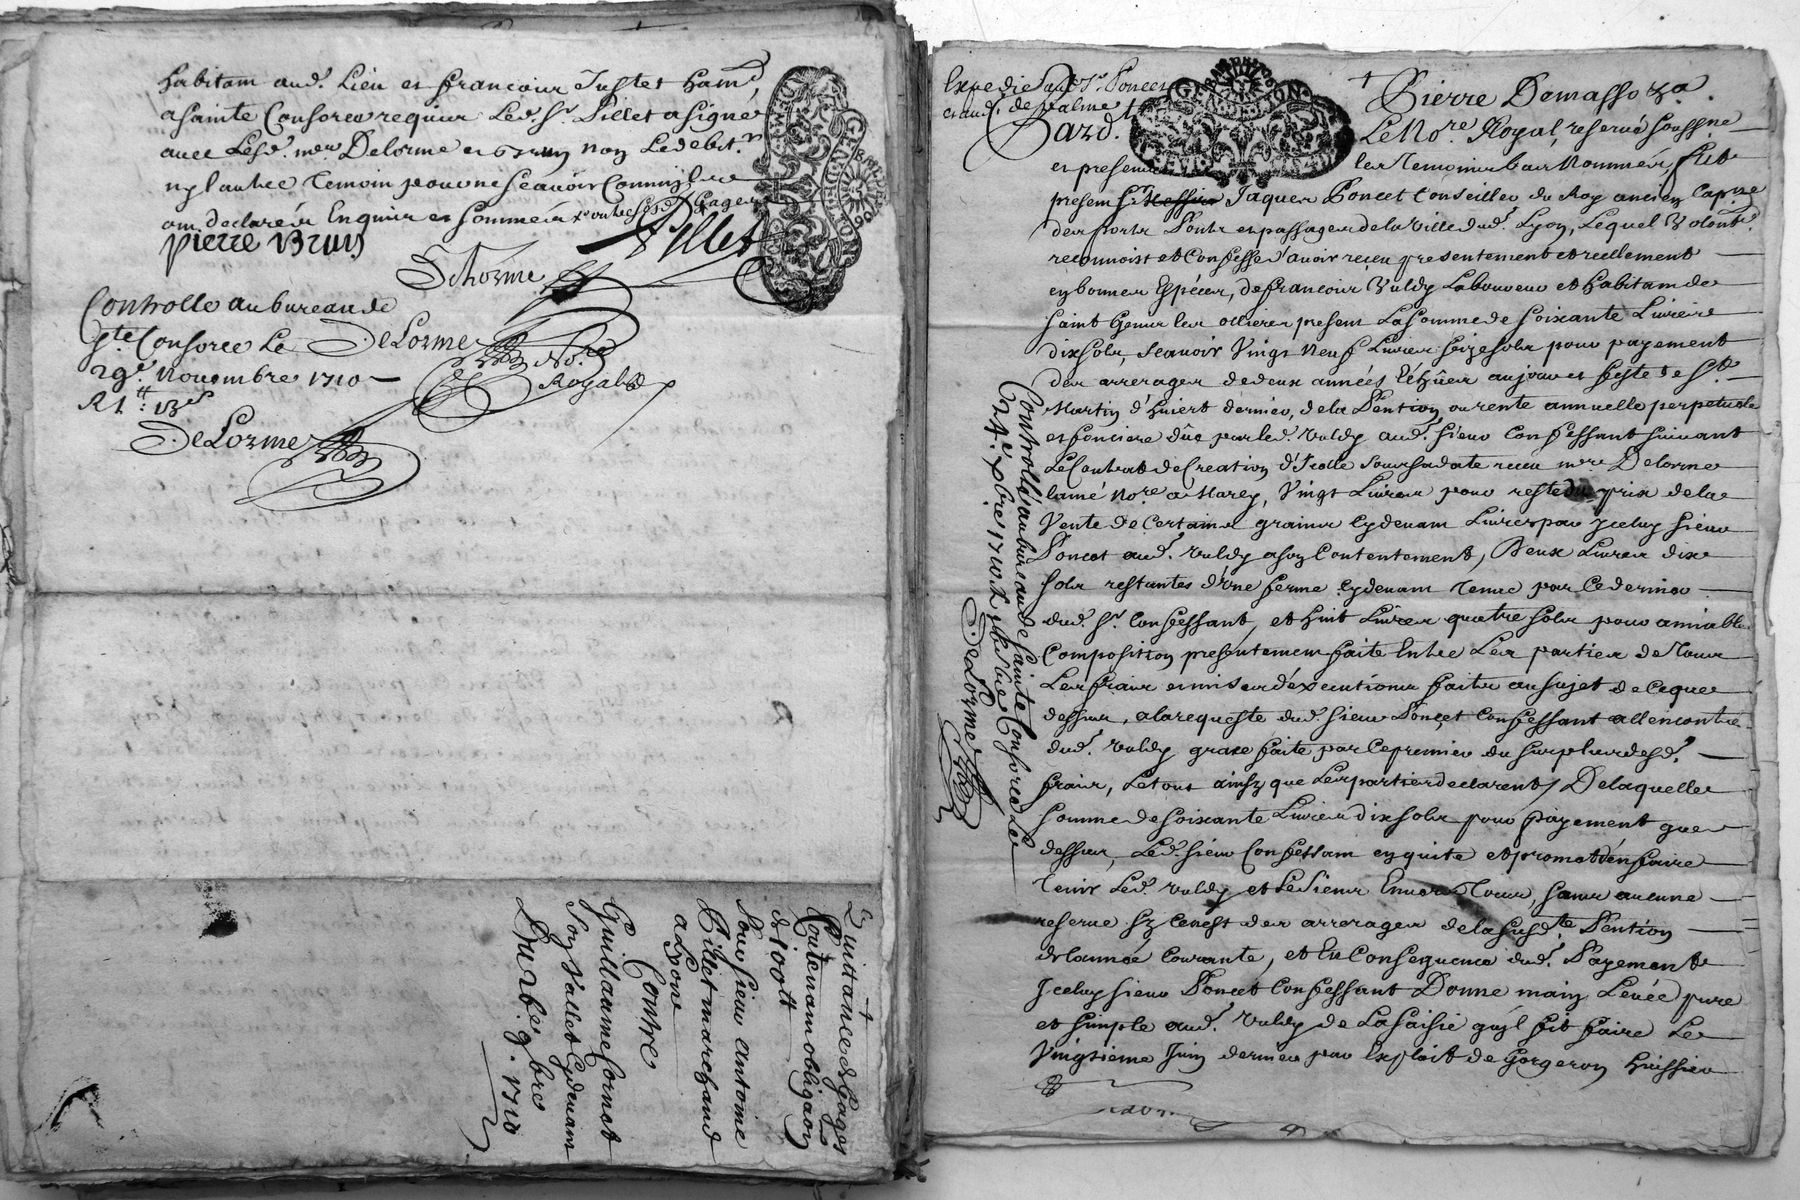 habitam aud. Lieu et francoix Justet ham
a Sainte Consorce requis Led. Sr. Pillet a signé
avec Lesd. mre Delorme et Brun non Ledebit.r
ny l'autre Temoin pour ne Scavoir Comm'ils
ont declaré Enquis et sommés
Pierre Brun
Pillet
Delorme
Controllé au bureau de
Ste Consorce Le
29e. novembre 1710
R 1tt:
DeLorme
Nore
Royal
DeLorme
Quittance de Gages
Contenant obligaon
de 100tt
Pour sieur antoine
Pillet marchand
a Lyon
Contre
Guillaume Cornet
Son Vallet Cydevant
Du 26e. 9bre. 1710
Expedié aud. Sr. Poncet
Pierre Demasso
Le Nore. Royal, reservé soussné
et presens les Temoins bas Nommés, fut
present Sr. Messire Jaques Poncet Conseiller du Roy ancien Capne
des portes Ponts et passages de la Ville dud. Lyon, Lequel Volonte.
reconnoist et Confesse d'avoir receu presentement et reellement
en bonnes Espéces, de francois Vuldy Laboureur et habitam de
Saint Genis les ollieres present La Somme de Soixante Livres
dix Sols, Scavoir Vingt neuf Livres seize sols pour payement
des arrerages de deux années Echûes au jour et feste de St.
Martin d'hiert dernier, de la Pention ou rente annuelle perpetuele
et fonciere dûe par led. Vuldy aud. sieur Confessant suivant
Le Contrat de Creation d'Icelle sous sa date receu mre Delorme
lainé nore a Marcy, Vingt Livres pour reste du prix de la
Vente de Certains grains Cydevant Livres par Iceluy sieur
Poncet aud. Vuldy a son Contentement, Deux Livres dix
sols restantes d'Une ferme Cydevant Tenue par Ce dernier
dud. Sr. Confessant, et huit Livres quatre sols pour amiable
Composition presentement faite Entre Les parties de Tous
Les frais et mises d'éxecutions faits au sujet de Ce que
dessus, a la requeste dud. sieur Poncet Confessant allencontre
dud. Vuldy grace faite par Ce premier du surplus desd.
frais, Le tout ainsy que Les parties declarent, De laquelle
Somme de Soixante Livres dix sols pour payement que
dessus, Led. sieur Confessant en quite et promet d'en faire
Tenir Led. Vuldy et Les siens Envers Tous, sans aucune
reserve sy Cenest des arrerages de la susd.te Pention
de lannée Courante, et En Consequence dud. Payement
Iceluy sieur Poncet Confessant Donne main Levée pure
et simple aud. Vuldy de La Saisie quyl fit faire Le
Vingtieme Juin dernier par Exploit de Gorgeron huissier
Controllé au bureau de Sainte Consorce Le
24e. Xbre 1710
DeLorme